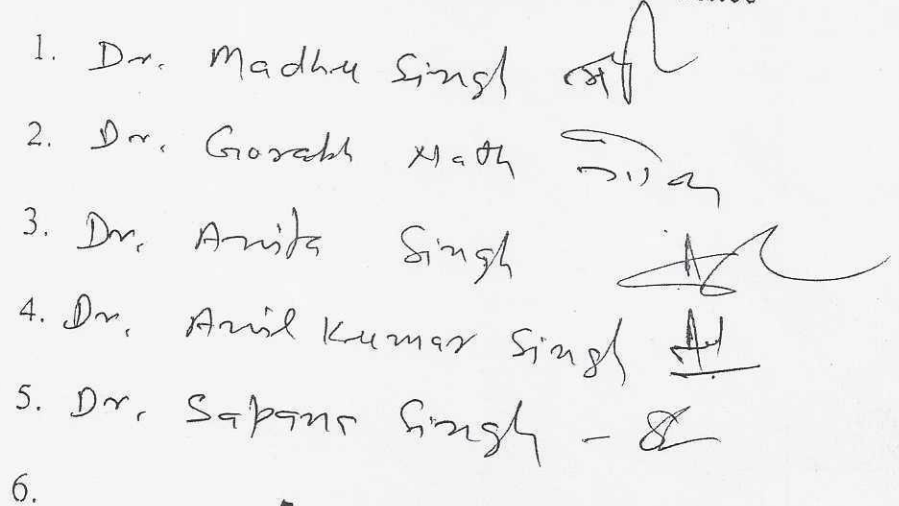 1. Dr. Madhu Singh
2. Dr. Gorakh Nath
3. Dr. Anita Singh
4. Dr. Anil Kumar Singh
5. Dr. Sapana Singh -
6.